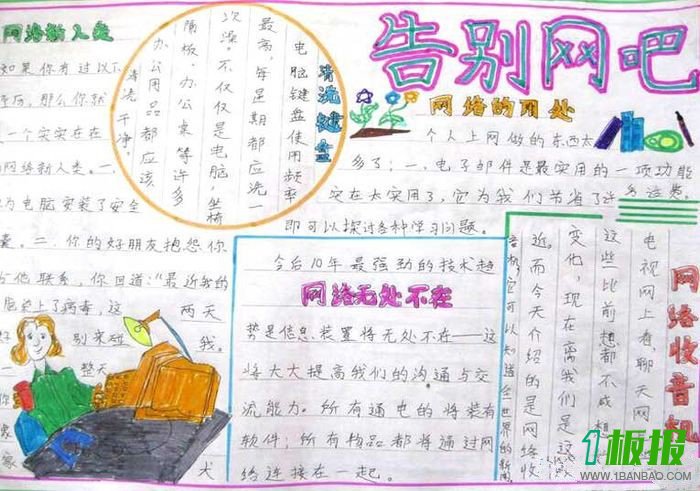 告别网吧
网络新人类
如果你有过以下
历，那么你就
一个实实在在
的网络新人类。一、
为电脑安装了安全
套。二、你的好朋友抱怨你
他联系，你回道：“最近我的
脑染上了病毒，这 两天
好 别来碰 我。
一 整天
你
家
家 犬
清洗键盘
电脑键盘使用频率
最高，每星期都应洗一
次澡。不仅仅是电脑，坐椅
隔板、办公桌等许多
办公用品都应该
清洗干净。
网络的用处
个人上网做的东西太
多了：一、电子邮件是最实用的一项功能
实在太实用了，它为我们节省了许
多话费。
即可以探讨各种学习问题。
今后10年最强劲的技术趋
网络无处不在
势是信息装置将无处不在——这
将大大提高我们的沟通与交
流能力。所有通电的将装有
软件；所有物品都将通过网
络连接在一起。
网络收音机
电视网上看，聊天网
这些比前想都不敢想
变化，现在离我们是这
近。而今天介绍的是网络收
音机，它可以知道全世界的新闻
1板报
WWW.1BANBAO.COM